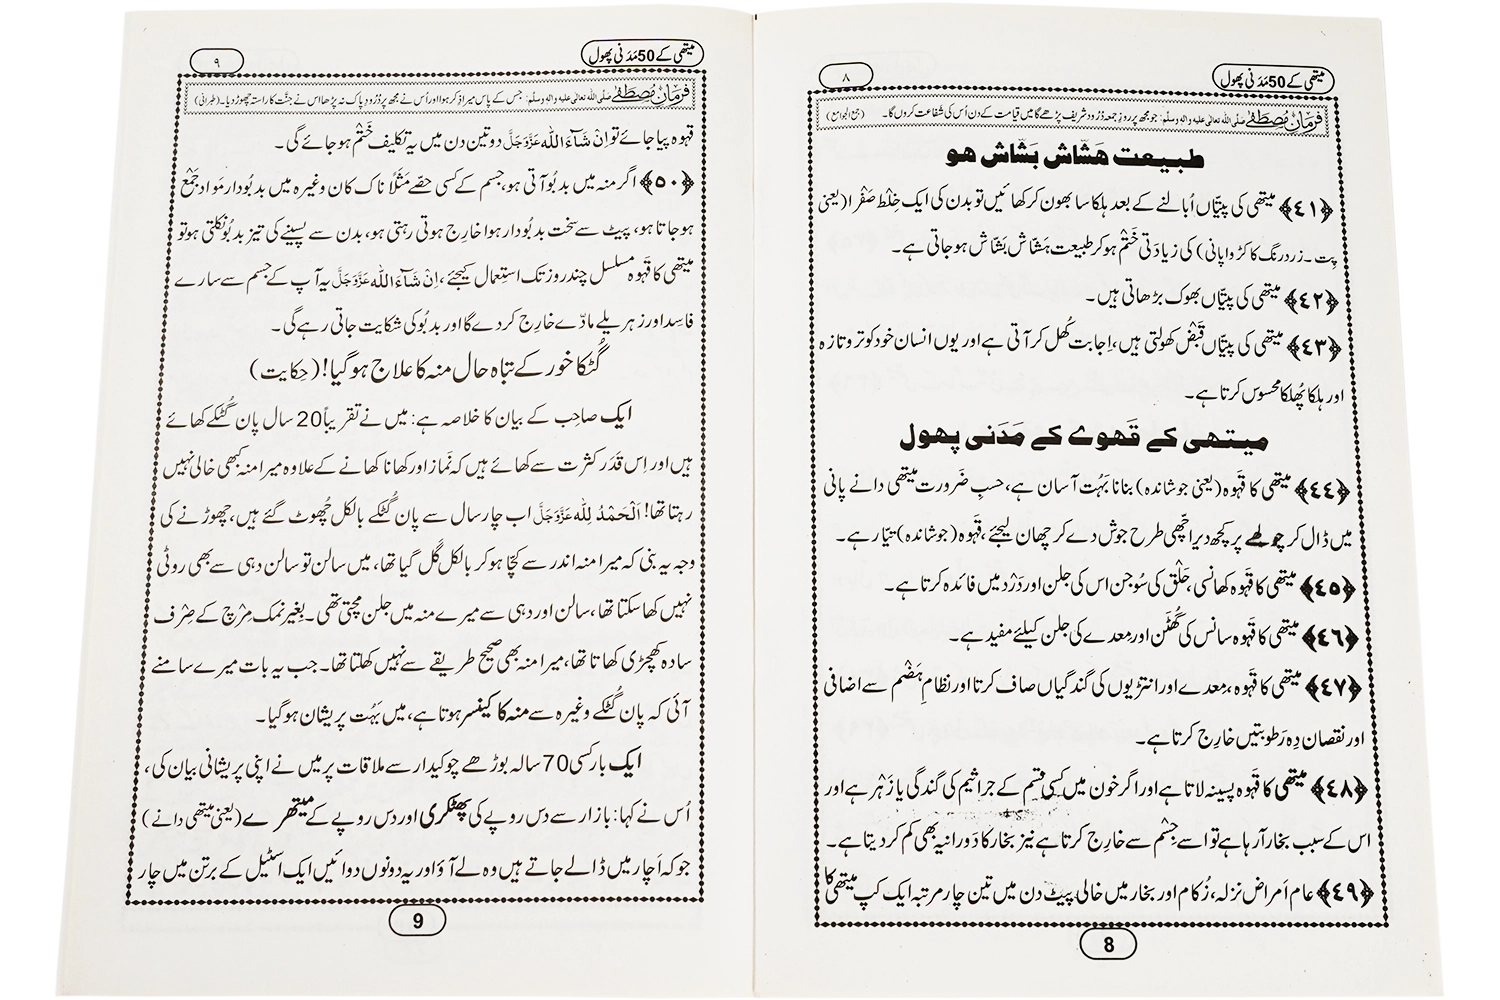 میتھی کے 50 مَدَنی پھول
۸
فرمانِ مُصطَفٰے صلی اللہ تعالیٰ علیہ والہ وسلم: جو مجھ پر روزِ جمعہ دُرُود شریف پڑھے گا میں قیامت کے دن اُس کی شفاعت کروں گا۔ (جمع الجوامع)
طبیعت ھَشّاش بَشّاش ھو
﴿٤١﴾ میتھی کی پتیّاں اُبالنے کے بعد ہلکا سا بھون کر کھائیں تو بدن کی ایک خِلْط صَفْرا (یعنی
پِت ۔ زرد رنگ کا کڑوا پانی) کی زیادَتی خَتْم ہو کر طبیعت ہَشّاش بَشّاش ہو جاتی ہے۔
﴿٤٢﴾ میتھی کی پتیّاں بھوک بڑھاتی ہیں۔
﴿٤٣﴾ میتھی کی پتیّاں قَبْض کھولتی ہیں، اِجابت کُھل کر آتی ہے اور یوں انسان خود کو تر و تازہ
اور ہلکا پُھلکا محسوس کرتا ہے۔
میتھی کے قَھوے کے مَدَنی پھول
﴿٤٤﴾ میتھی کا قہوہ (یعنی جوشاندہ) بنانا بَہُت آسان ہے، حسبِ ضَرورت میتھی دانے پانی
میں ڈال کر چولھے پر کچھ دیر اچّھی طرح جوش دے کر چھان لیجئے، قہوہ (جوشاندہ) تیّار ہے۔
﴿٤٥﴾ میتھی کا قہوہ کھانسی، حَلْق کی سُوجن اس کی جلن اور دَرْد میں فائدہ کرتا ہے۔
﴿٤٦﴾ میتھی کا قہوہ سانس کی گُھٹَن اور مِعدے کی جلن کیلئے مفید ہے۔
﴿٤٧﴾ میتھی کا قہوہ، مِعدے اور انتڑیوں کی گندگیاں صاف کرتا اور نظامِ ہَضْم سے اضافی
اور نقصان دِہ رَطوبتیں خارِج کرتا ہے۔
﴿٤٨﴾ میتھی کا قہوہ پسینہ لاتا ہے اور اگر خون میں کسی قسم کے جراثیم کی گندگی یا زَہْر ہے اور
اس کے سبب بخار آ رہا ہے تو اسے جِسْم سے خارِج کرتا ہے نیز بخار کا دَورانیہ بھی کم کر دیتا ہے۔
﴿٤٩﴾ عام اَمراض نزلہ، زُکام اور بخار میں خالی پیٹ دن میں تین چار مرتبہ ایک کپ میتھی کا
8
میتھی کے 50 مَدَنی پھول
۹
فرمانِ مُصطَفٰے صلی اللہ تعالیٰ علیہ والہ وسلم: جس کے پاس میرا ذکر ہوا اور اُس نے مجھ پر دُرُودِ پاک نہ پڑھا اس نے جنّت کا راستہ چھوڑ دیا۔ (طبرانی)
قہوہ پیا جائے تو اِنْ شَآءَ اللہ عَزَّوَجَلَّ دو تین دن میں یہ تکلیف خَتْم ہو جائے گی۔
﴿٥٠﴾ اگر منہ میں بدبُو آتی ہو، جسم کے کسی حصّے مَثَلًا ناک کان وغیرہ میں بدبُودار مَواد جَمْع
ہو جاتا ہو، پیٹ سے سخت بدبُودار ہوا خارِج ہوتی رہتی ہو، بدن سے پسینے کی تیز بدبُو نکلتی ہو تو
میتھی کا قَہوہ مسلسل چند روز تک استِعمال کیجئے، اِنْ شَآءَ اللہ عَزَّوَجَلَّ یہ آپ کے جسم سے سارے
فاسِد اور زہریلے مادّے خارِج کر دے گا اور بدبُو کی شکایت جاتی رہے گی۔
گُٹکا خور کے تباہ حال منہ کا علاج ہو گیا! (حِکایت)
ایک صاحِب کے بیان کا خلاصہ ہے: میں نے تقریباً 20 سال پان گُٹکے کھائے
ہیں اور اِس قَدَر کثرت سے کھائے ہیں کہ نَماز اور کھانا کھانے کے علاوہ میرا منہ کبھی خالی نہیں
رہتا تھا! اَلْحَمْدُ لِلّٰہ عَزَّوَجَلَّ اب چار سال سے پان گُٹکے بالکل چُھوٹ گئے ہیں، چھوڑنے کی
وجہ یہ بنی کہ میرا منہ اندر سے کچّا ہو کر بالکل گَل گیا تھا، میں سالن تو سالن دہی سے بھی روٹی
نہیں کھا سکتا تھا، سالن اور دہی سے میرے منہ میں جلن مچتی تھی۔ بِغیر نمک مِرْچ کے صِرْف
سادہ کھچڑی کھاتا تھا، میرا منہ بھی صحیح طریقے سے نہیں کھلتا تھا۔ جب یہ بات میرے سامنے
آئی کہ پان گُٹکے وغیرہ سے منہ کا کینسر ہوتا ہے، میں بَہُت پریشان ہو گیا۔
ایک بار کسی 70 سالہ بوڑھے چوکیدار سے ملاقات پر میں نے اپنی پریشانی بیان کی،
اُس نے کہا: بازار سے دس روپے کی پھٹکری اور دس روپے کے میتھرے (یعنی میتھی دانے)
جو کہ اَچار میں ڈالے جاتے ہیں وہ لے آؤ اور یہ دونوں دوائیں ایک اسٹیل کے برتن میں چار
9